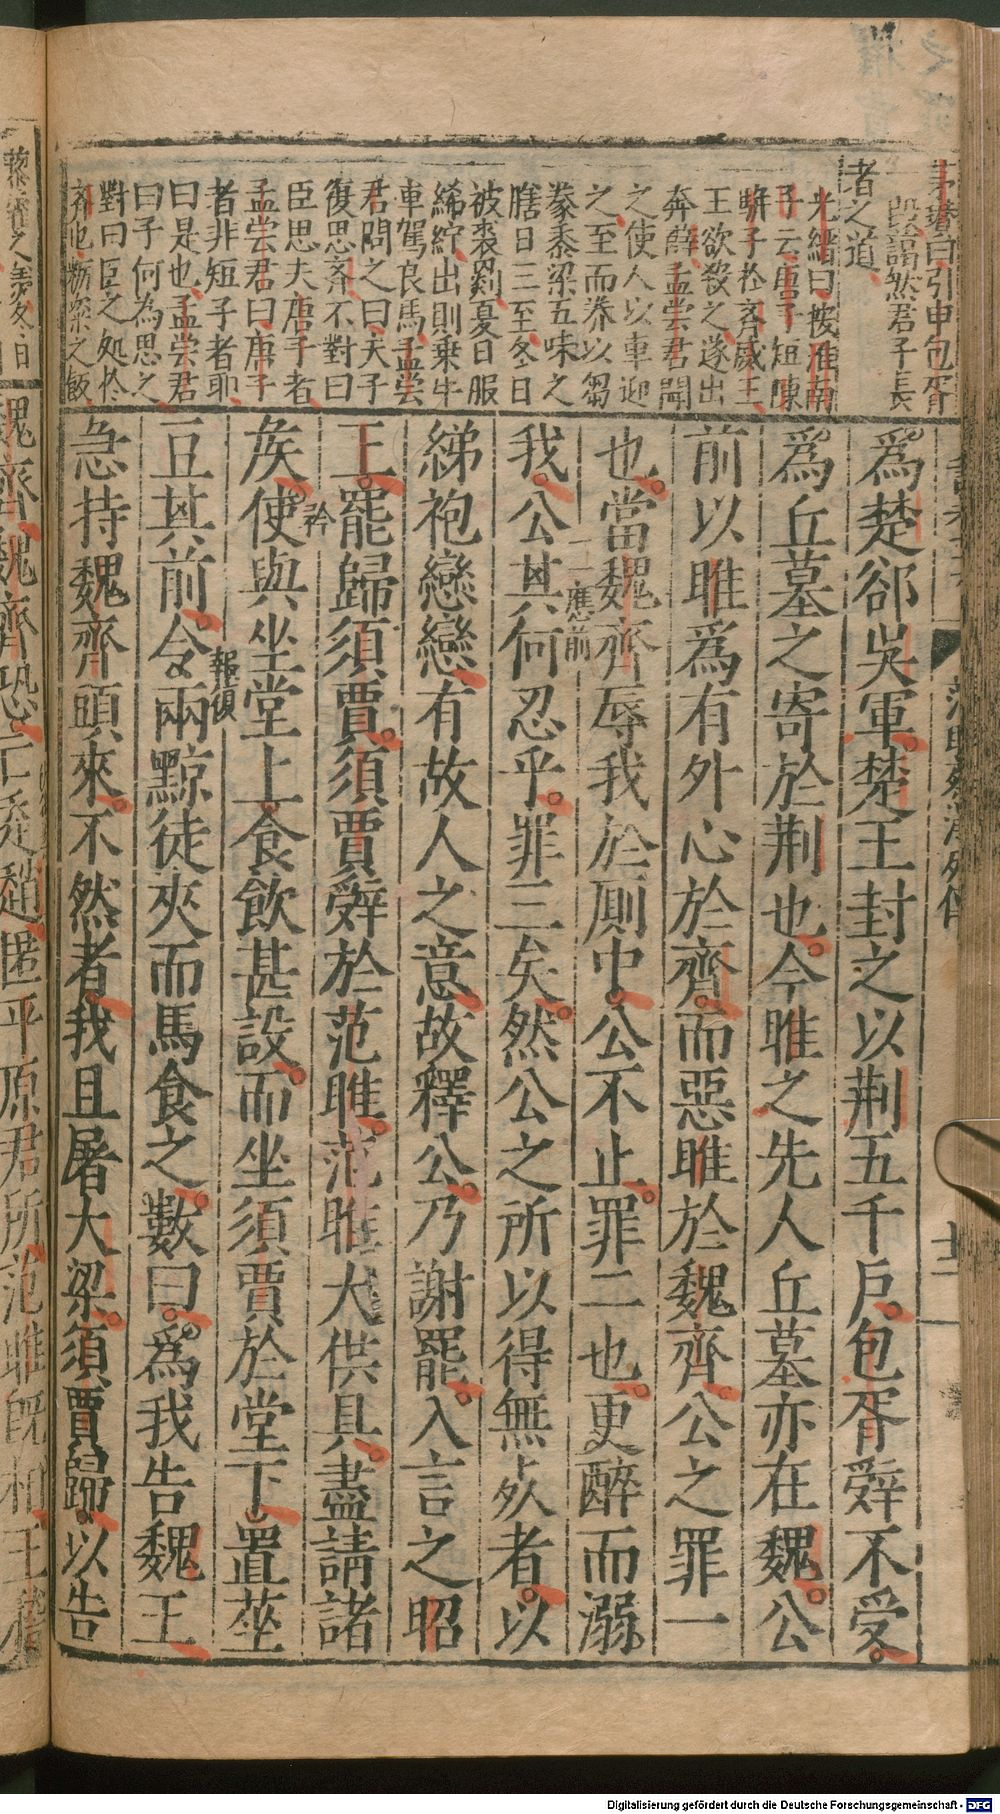 茅瓚曰引申包胥
毀譖然君子長
者之道
光縉曰按淮南
子云唐子短陳
駢子於齊威王
王欲殺之遂出
奔薛孟嘗君聞
之使人以車迎
之至而豢以芻
豢黍梁五味之
膳日三至冬日
被裘罽夏日服
絺紵出則乗牛
車駕良馬孟嘗
君問之曰夫子
復思齊不對曰
臣思夫唐子者
孟嘗君曰唐子
者非短子者耶
曰是也孟嘗君
曰子何為思之
對曰臣之処於
齊也糲粢之飯
藜藿之羹冬日
爲楚郤吳軍楚王封之以荆五千戶包胥辤不受
爲丘墓之寄於荆也今睢之先人丘墓亦在魏公
前以睢爲有外心於齊而惡睢於魏齊公之罪一
也當魏齊辱我於厠中公不止罪二也更醉而溺
一應前
我公其何忍乎罪三矣然公之所以得無死者以
綈袍戀戀有故人之意故釋公乃謝罷入言之昭
王罷歸須賈須賈辤於范睢范睢大供具盡請諸
矦使與坐堂上食飲甚設而坐須賈於堂下置莝
豆其前令兩黥徒夾而馬食之數曰爲我告魏王
急持魏齊頭來不然者我且屠大梁須賈歸以告
魏齊魏齊恐亡走趙匿平原君所范睢旣相王
范睢蔡澤列傳
十二
Digitalisierung gefördert durch die Deutsche Forschungsgemeinschaft - DFG